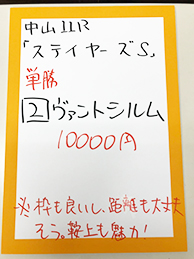 中山11R
「ステイヤーズS」
単勝
2 ヴァントシルム
10000円
※枠も良いし、距離も大丈夫
そう。鞍上も魅力!